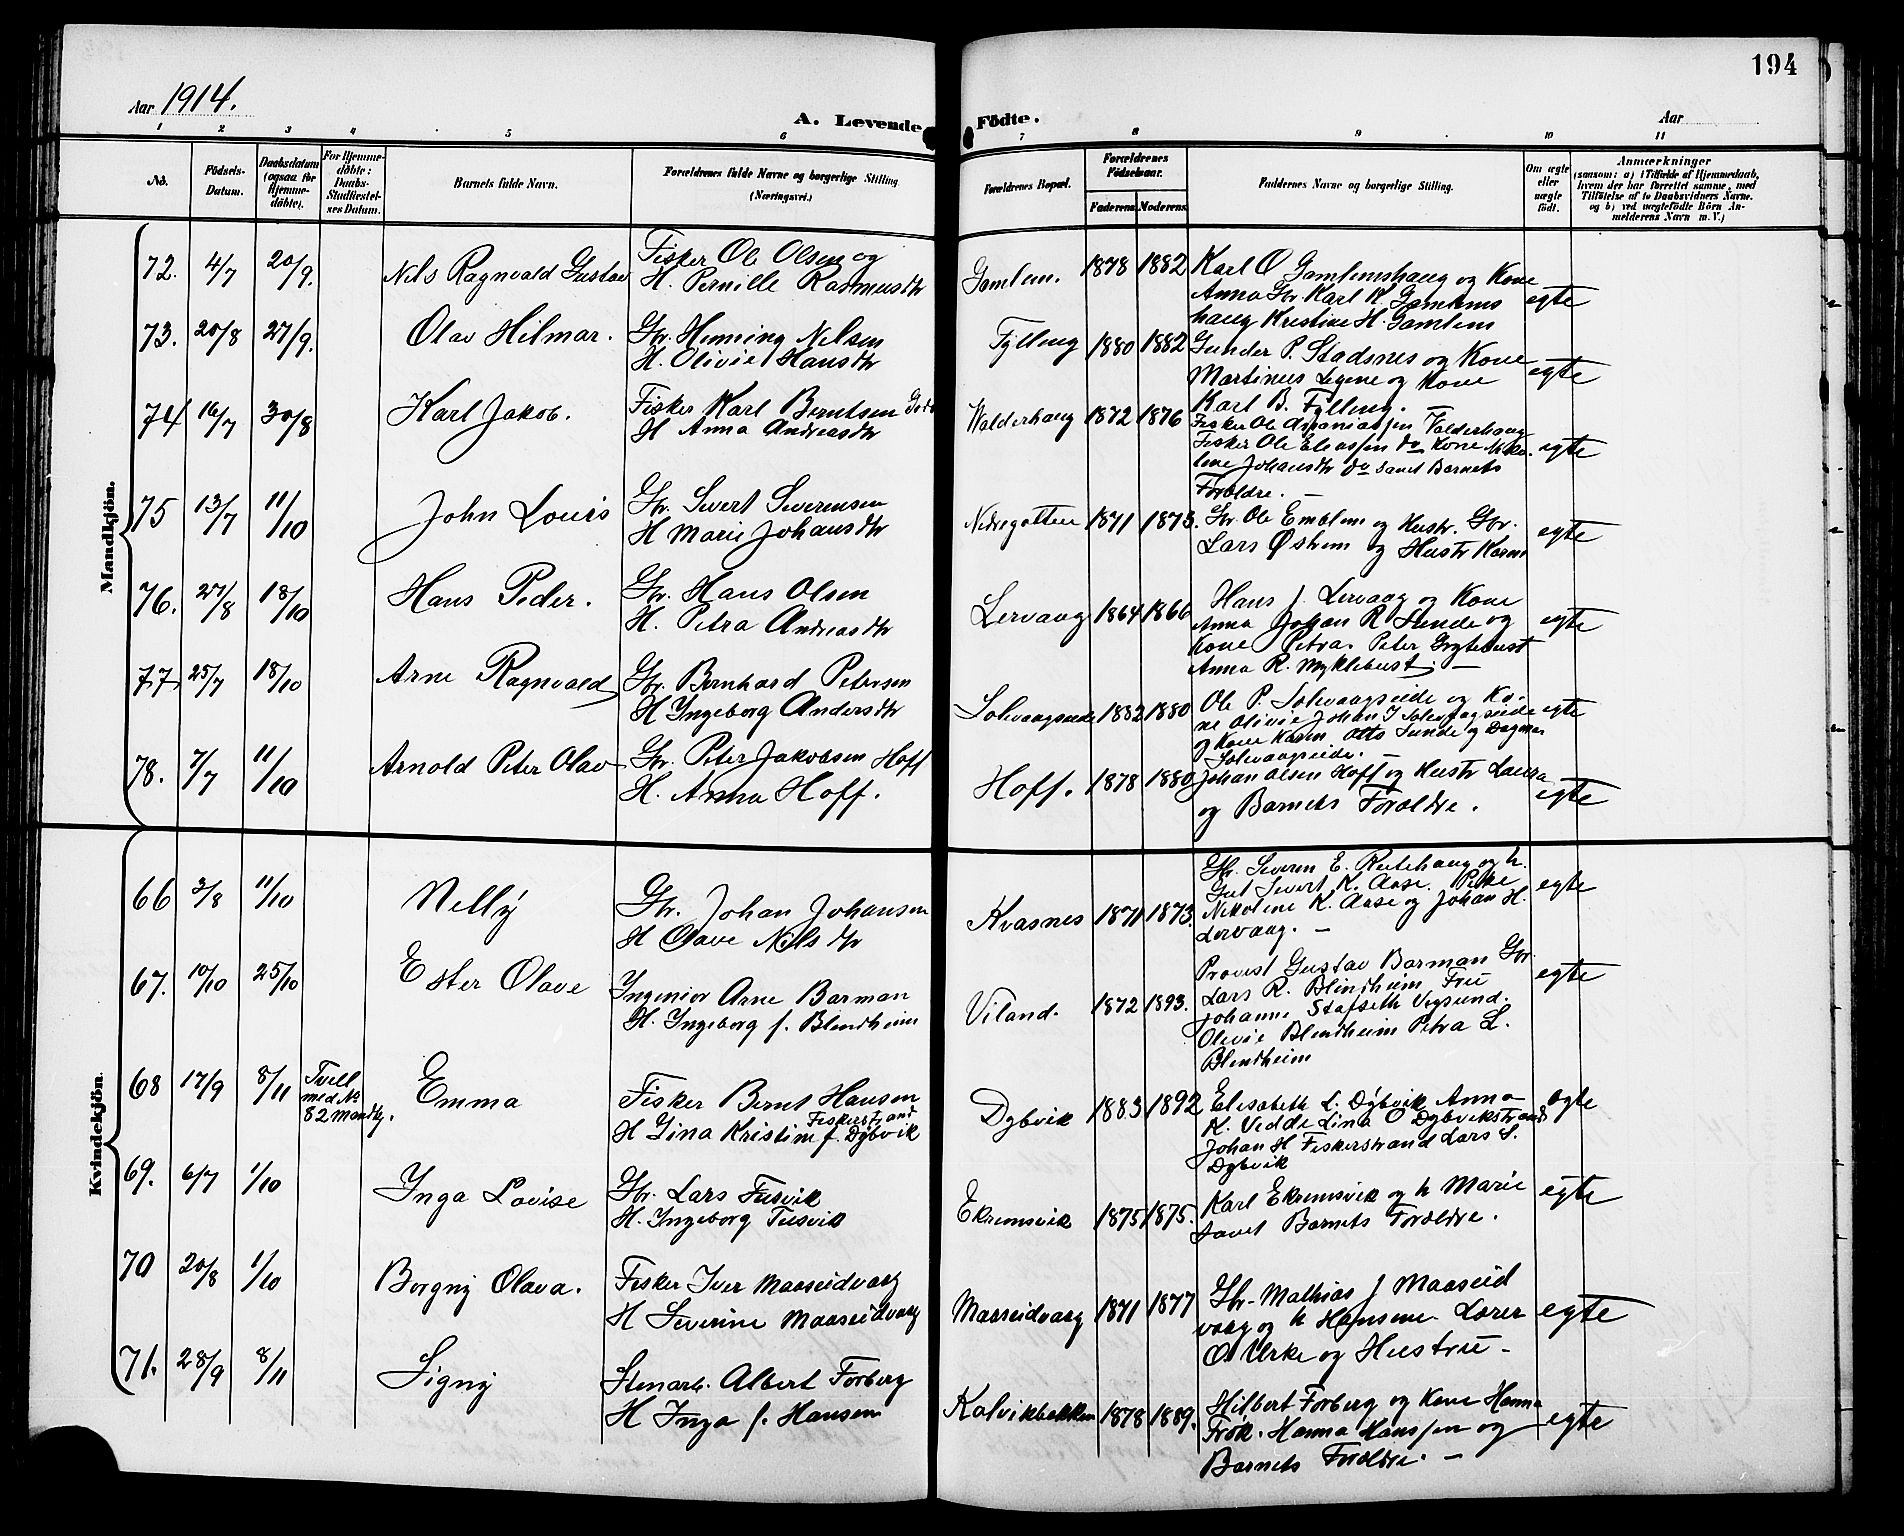 194
Aar 1914.
A. Levende Födte.
Aar
1 2 3 4 5 6 7 8 9 10 11
No.
Födsels-
Datum.
Daabsdatum
(ogsaa for
Hjemme-
döbte).
For Hjemme-
döbte:
Daabs-
Stadfæstel-
ses Datum.
Barnets fulde Navn.
Forældrenes fulde Navne og borgerlige Stilling
(Næringsvei.)
Forældrenes Bopæl.
Forældrenes
Födselsaar.
Faderens Moderens
Faddernes Navne og borgerlige Stilling.
Om ægte
eller
uægte
født.
Anmærkninger
(saasom: a) i Tilfælde af Hjemmedaab,
hvem der har forrettet samme, med
Tilföielse af to Daabsvidners Navne.
og b) ved uægtefödte Börn An-
melderens Navn m. V.)
Mandkjön.
72. 4/7 20/9. Nils Ragnvald Gustav
Fisker Ole Olsen og
H. Pernille Rasmusdtr
Gamlem. 1878 1882
Karl O Gamlemshaug og Kone
Anna Gbr Karl K. Gamlems
haug Kristine H. Gamlem
egte
73. 20/8 27/9. Olav Hilmar.
Gbr. Henning Nilsen
H. Olivie Hansdtr
Fylling 1880 1882
Gunder P. Stadsnes og Kone
Martinus Legene og Kone
Karl B. Fylling.
egte
74 16/7 30/8 Karl Jakob.
Fisker Karl Berntsen
H Anna Andreasdtr
Valderhaug 1872 1876
Fisker Ole Ananiassen Valderhaug
Fisker Ole Eliassen do Kone Nike-
line Johansdtr do samt Barnets
Forældre. —
egte
75 13/7 11/10 John Louis
Gbr. Sivert Severensen
H Marie Johansdtr
Nedregotten 1871 1873.
Gbr. Ole Emblem og Hustr. Gbr.
Lars Østrem og Hustr Karen
egte
76. 27/8 18/10 Hans Peder.
Gbr. Hans Olsen
H. Petra Andreasdtr
Lervaag 1864 1866
Hans J. Lervaag og Kone
Anna Johan R. Sunde og
Kone Petra. Peter Grytebust
Anna R. Myklebust. —
egte
77, 25/7 18/10 Arne Ragnvald
Gbr. Bernhard Petersen
H Ingeborg Andersdtr
Solvaagseide 1882 1880
Ole P. Solvaagseide og Ko-
ne Olivie Johan J Solvaagseide
og Kone Karen Otto Sunde og Dagmar
Solvaagseide. —
egte
78. 7/7 11/10 Arnold Peter Olav
Gbr. Peter Jakobsen Hoff
H. Anna Hoff.
Hoff. 1878 1880
Johan Olsen Hoff og Hustr Laura
og Barnets Forældre.
egte
Kvindekjön.
66 3/8 11/10 Nelly
Gbr. Johan Johansen
H Olave Nilsdtr
Kvasnes 1871 1873.
Gbr. Severin E. Reitehaug og h.
Gut Sivert K. Aase. Pike
Nikoline K. Aase og Johan H.
Lervaag. —
egte
67. 10/10 25/10 Ester Olave
Ingeniør Arne Barman
H. Ingeborg f. Blindheim
Viland. 1872 1893.
Provst Gustav Barman Gbr.
Lars R. Blindheim Fru
Johanne Stafseth Vegsund.
Olivie Blindheim Petra L.
Blindheim
egte
68 17/9 8/11 Tvill
med No
82 mandkj.
Emma
Fisker Bernt Hansen
Fiskerstrand
H Gina Kristine f. Dybvik
Dybvik 1883 1892
Elisabeth L. Dybvik Anna
K. Vedde Lina O Dybvikstrand
Johan H Fiskerstrand Lars L.
Dybvik
egte
69. 6/7 1/10 Inga Lovise
Gbr. Lars Tusvik
H. Ingeborg Tusvik
Ekremsvik 1875 1875.
Karl Ekremsvik og h Marie
samt Barnets Forældre.
egte
70 20/8 1/10 Borgny Olava.
Fisker Iver Maaseidvaag
H Severine Maaseidvaag
Maaseidvaag 1871 1877
Gbr. Mathias J Maaseid
vaag og h Hansine. Lærer
O. Urke og Hustru —
egte
71. 28/9 8/11 Signy
Stenarb. Albert Forberg
H Inga f. Hansen
Kalvikbakken 1878 1889.
Hilbert Forberg og Kone Hanna
Frøk. Hanna Hanssen og
Barnets Forældre. —
egte